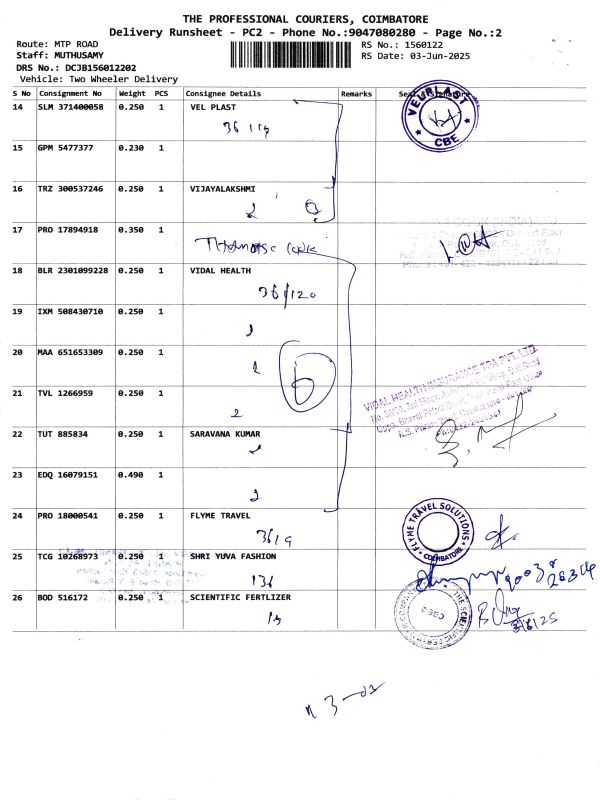 THE PROFESSIONAL COURIERS, COIMBATORE
Delivery Runsheet - PC2 - Phone No.:9047080280 - Page No.:2
Route: MTP ROAD
Staff: MUTHUSAMY
DRS No.: DCJB156012202
Vehicle: Two Wheeler Delivery
RS No.: 1560122
RS Date: 03-Jun-2025
S No Consignment No Weight PCS Consignee Details Remarks
14 SLM 371400058 0.250 1 VEL PLAST
15 GPM 5477377 0.230 1
16 TRZ 300537246 0.250 1 VIJAYALAKSHMI
2
17 PRO 17894918 0.350 1
18 BLR 2301099228 0.250 1 VIDAL HEALTH
36/120
19 IXM 508430710 0.250 1
20 MAA 651653309 0.250 1
6
21 TVL 1266959 0.250 1
2
VIDAL HEALTH INSURANCE TPA PVT. LTD.
22 TUT 885834 0.250 1 SARAVANA KUMAR
23 EDQ 16079151 0.490 1
2
24 PRO 18000541 0.250 1 FLYME TRAVEL
FLYME TRAVEL SOLUTIONS
COIMBATORE
25 TCG 10268973 0.250 1 SHRI YUVA FASHION
136
26 BOD 516172 0.250 1 SCIENTIFIC FERTLIZER
CBE-2
3/6/25